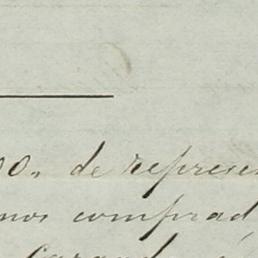 00, de represen
nos comprad